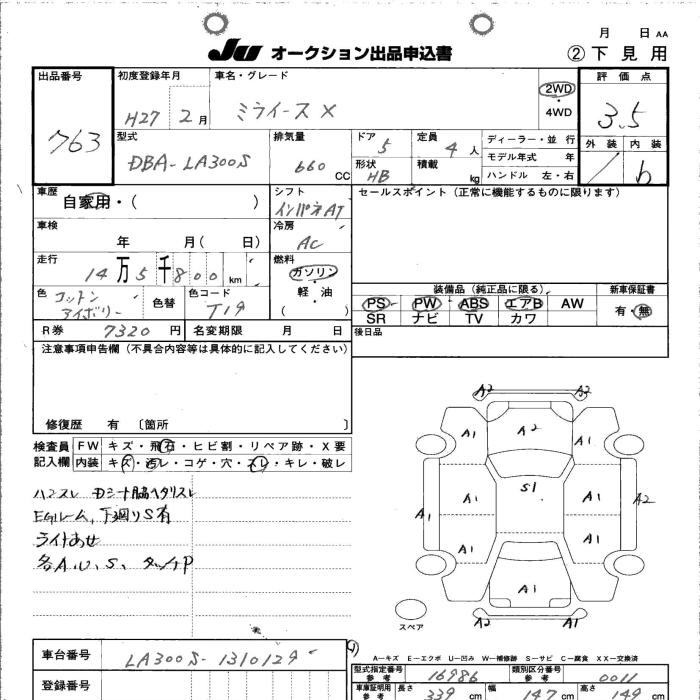 月 日 AA
JU オークション出品申込書 ②下見用
出品番号 初度登録年月 車名・グレード 評価点
763 H27 2月 ミライース X 2WD・4WD 3.5
型式 排気量 ドア 定員 ディーラー・並行 外装 内装
DBA-LA300S 660 CC 5 4人 モデル年式 年 b
形状 積載 ハンドル 左・右
HB kg
車歴 シフト セールスポイント（正常に機能するものに限ります）
自家用・（ ） インパネAT
車検 冷房
年 月（ 日） AC
走行 燃料
14万5千800km ガソリン・軽油
（ ）
色 色替 色コード 装備品（純正品に限る） 新車保証書
コットンアイボリー T19 PS PW ABS エアB AW 有・無
SR ナビ TV カワ
R券 7320円 名変期限 月 日 後日品
注意事項申告欄（不具合内容等は具体的に記入してください）
修復歴 有 〔箇所 〕
検査員 FW キズ・飛石・ヒビ割・リペア跡・X要
記入欄 内装 キズ・汚レ・コゲ・穴・スレ・キレ・破レ
ハンスレ Dシート脇ヘタリスレ
EGルーム、下廻りS有
ライトあせ
各A.U.S、タッチP
A2 A2
A1 A2 A1
S1
A1 A1
A1 A2
A1 A1
A1
A2 A1
スペア
A-キズ E-エクボ U-凹み W-補修跡 S-サビ C-腐食 XX-交換済
車台番号 LA300S-1310129
型式指定番号 参考 16986 類別区分番号 参考 0011
登録番号 車庫証明用 参考 長さ 339cm 幅 147cm 高さ 149cm